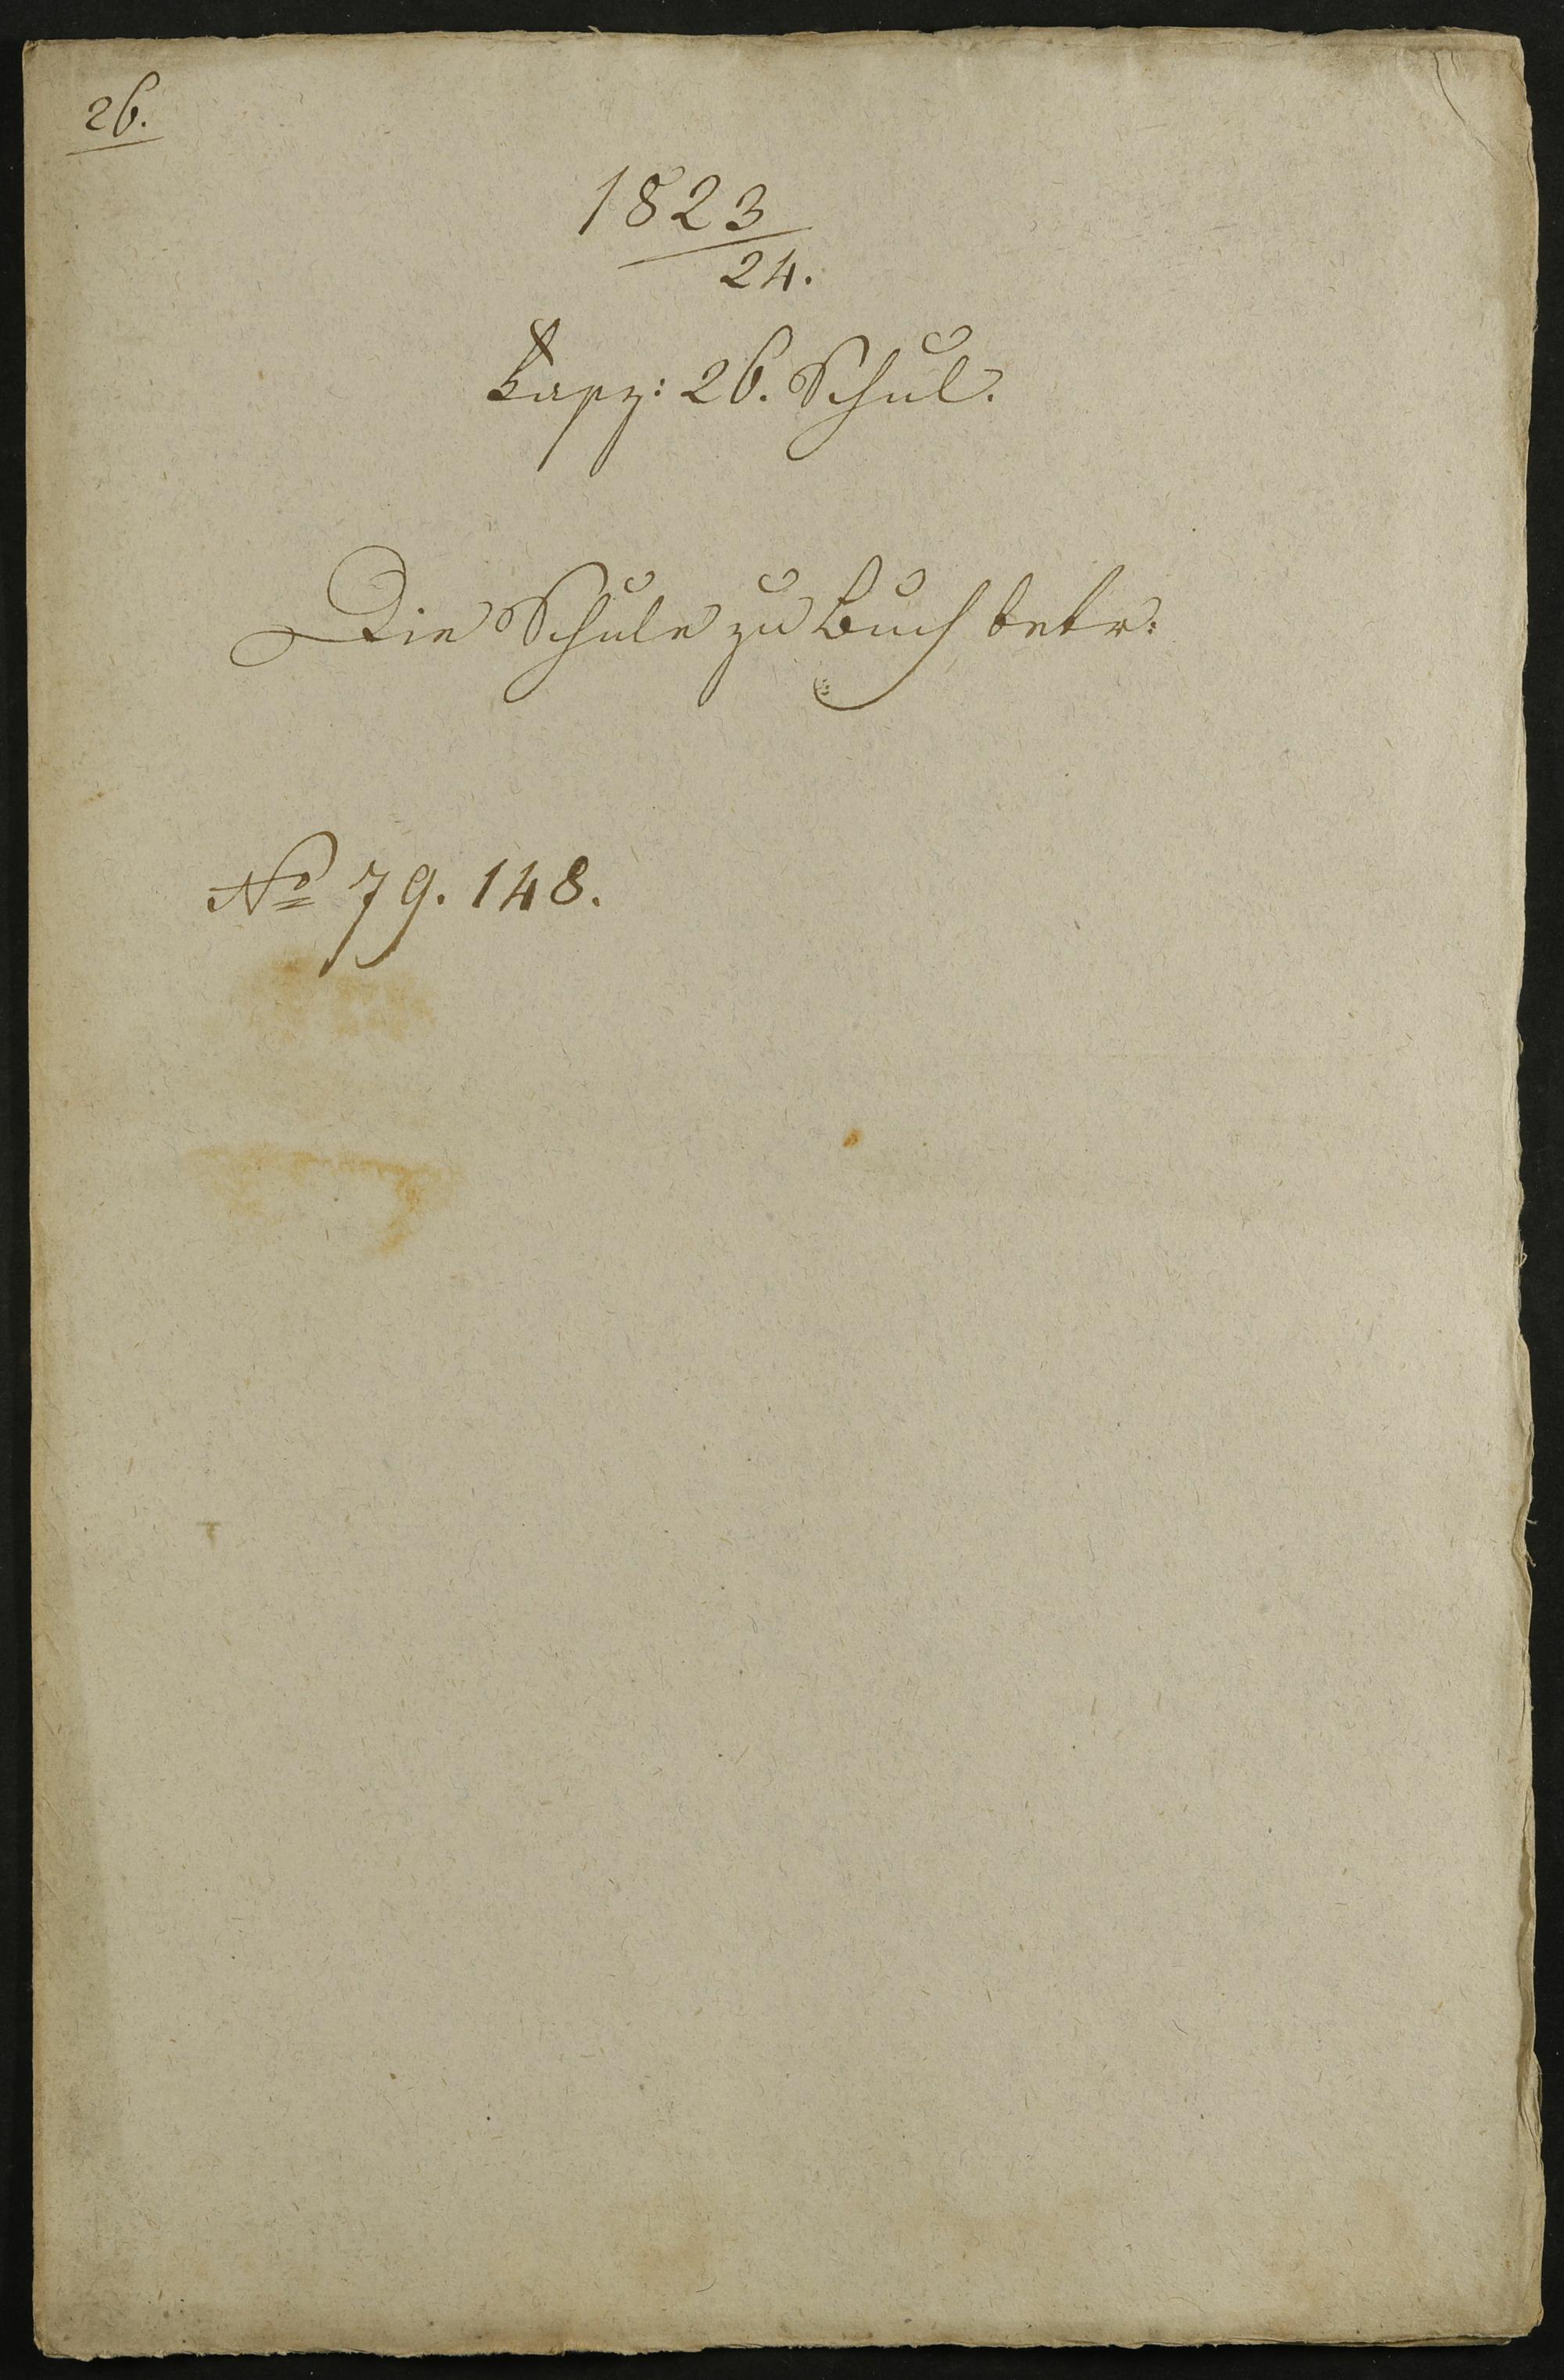 26.
1823
24.
Fasz: 26. Schul.
Die Schule zu Buch betr:
No 79. 148.